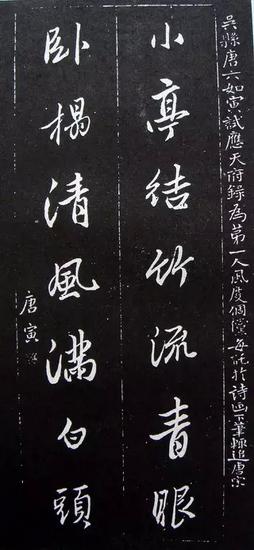 吳縣唐六如寅試應天府錄為第一人風度倜儻每託於詩画下筆輒追唐宗
小亭結竹流青眼
卧榻清風滿白頭
唐寅